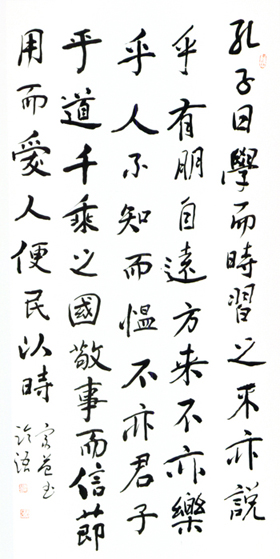 孔子曰學而時習之不亦說
乎有朋自遠方来不亦樂
乎人不知而慍不亦君子
乎道千乘之國敬事而信節
用而愛人使民以時
論語